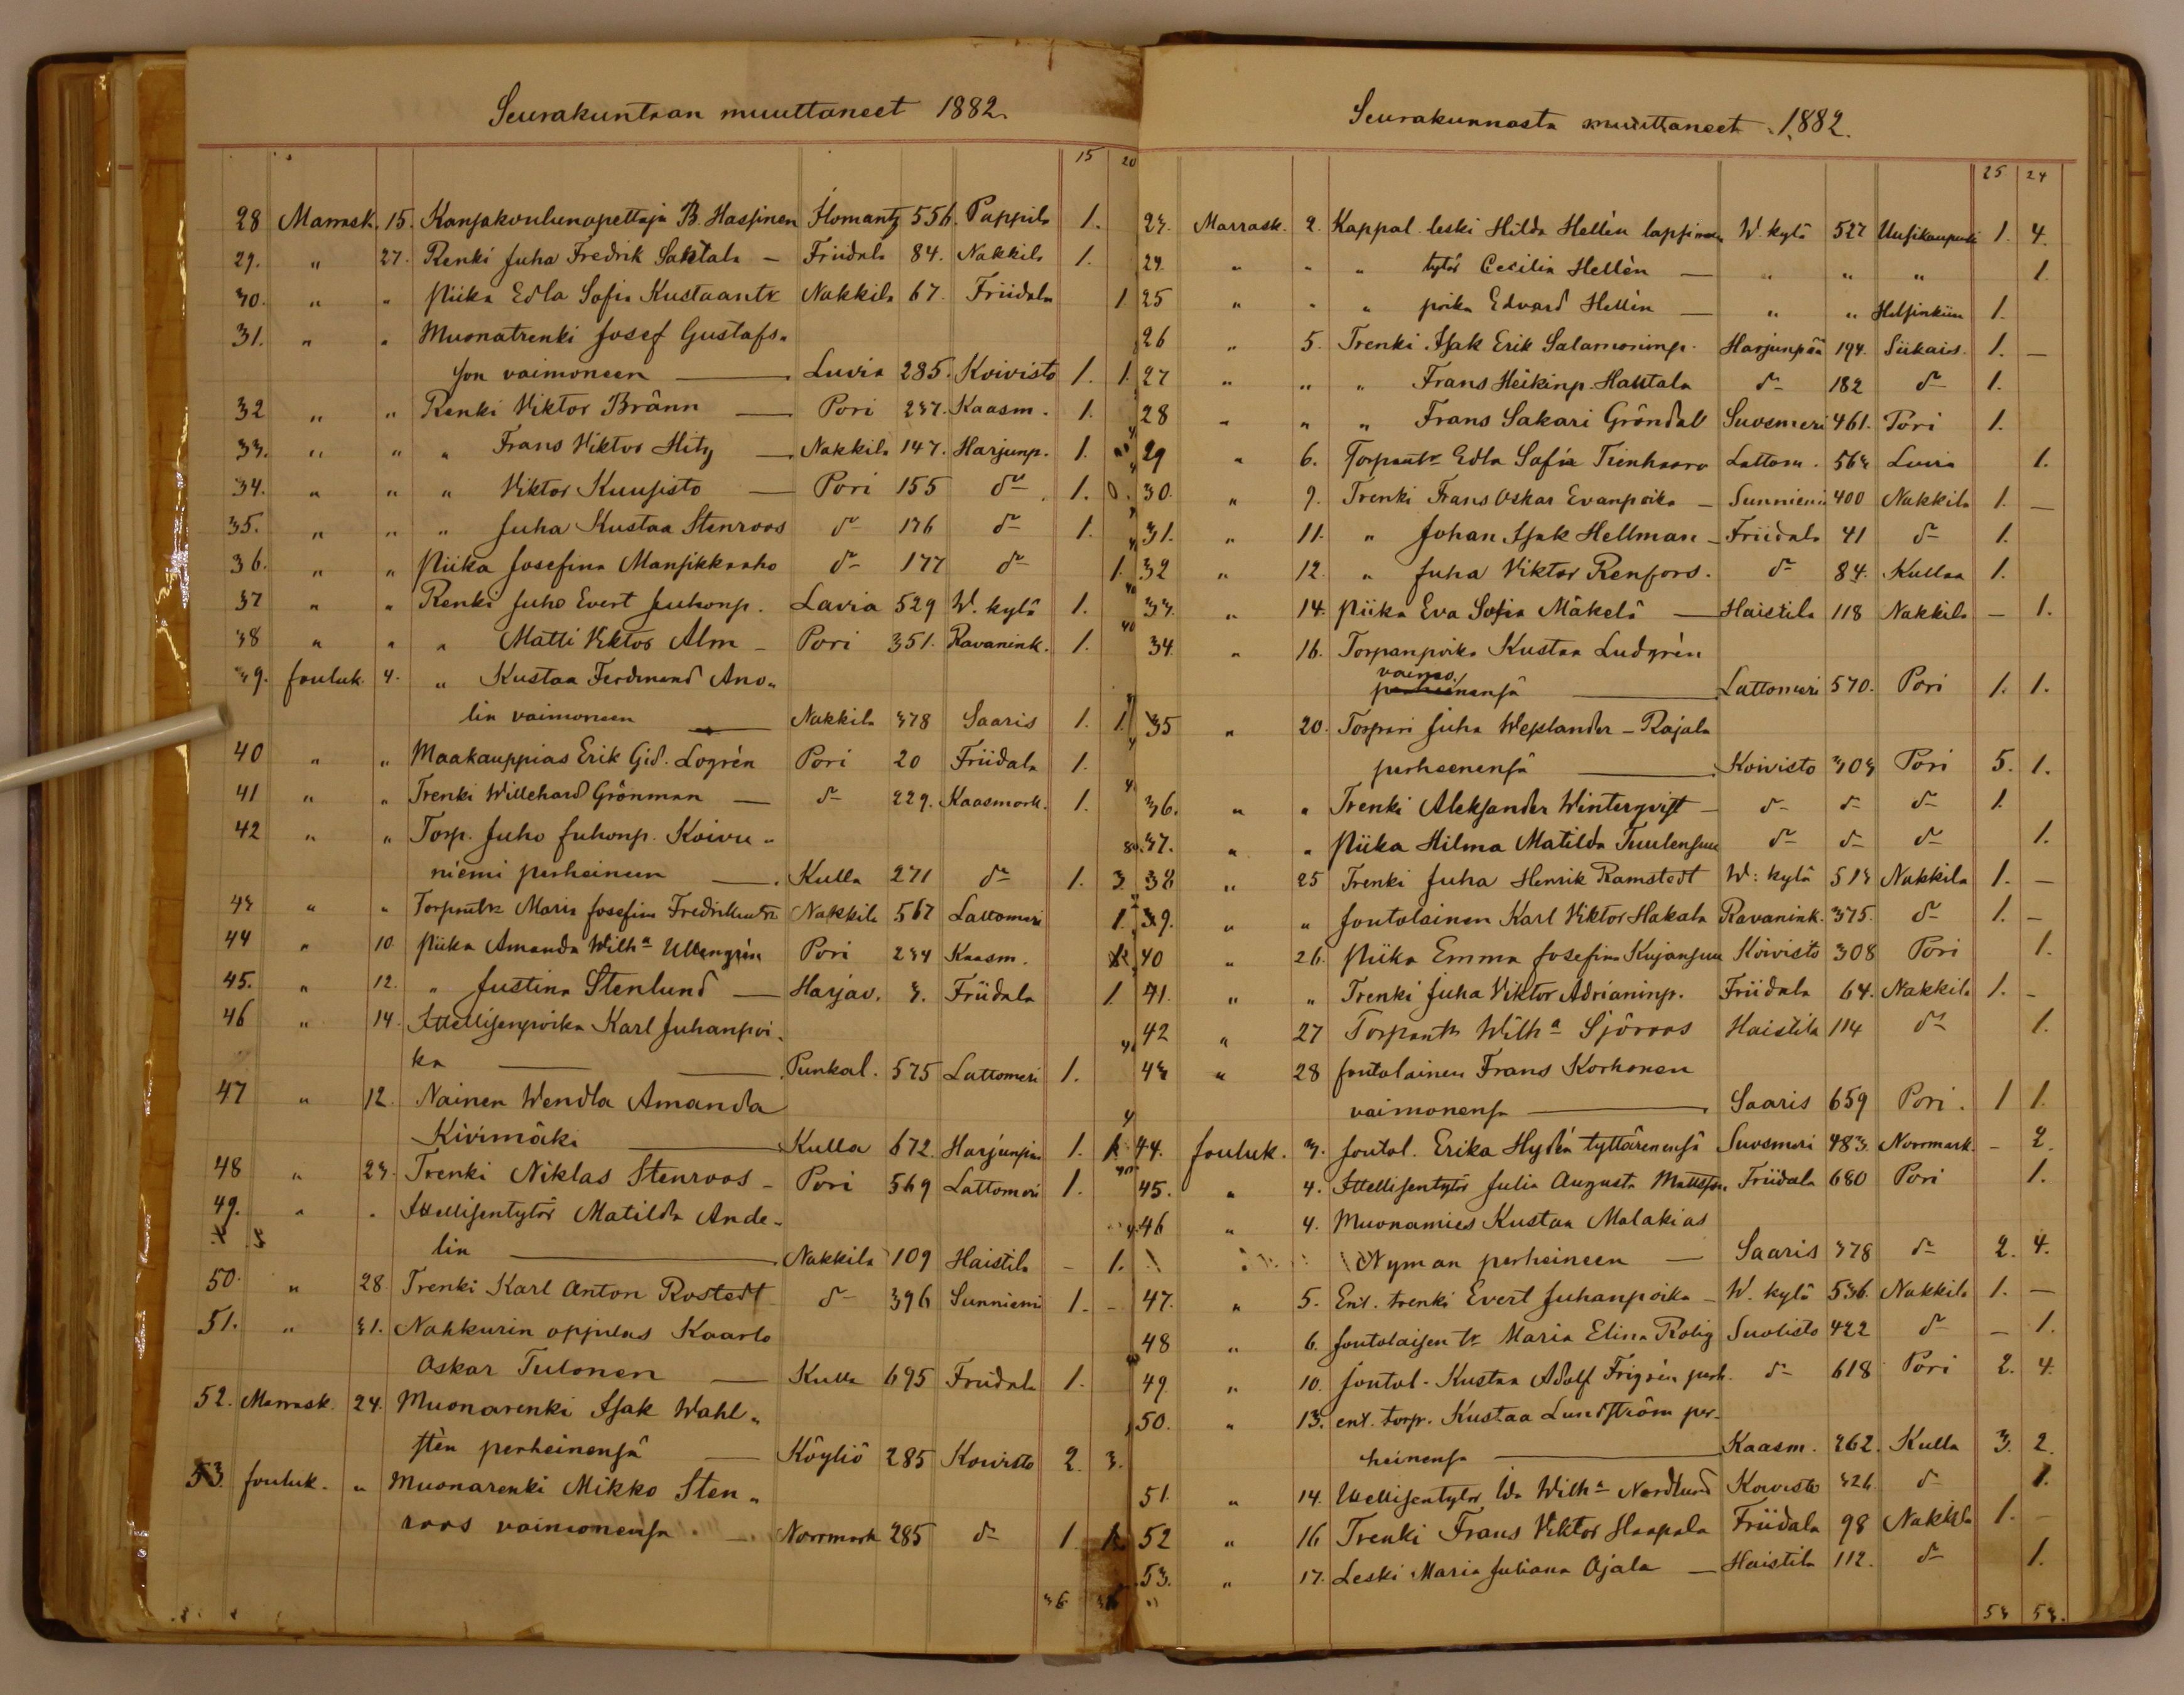 Seurakuntaan muuttaneet 1882.
15 20
28 Marrask. 15. Kansakoulunopettaja B. Hassinen Ilomantz 556. Pappila 1.
29. " 27. Renki Juha Fredrik Sahtala — Friidala 84. Nakkila 1.
30. " " Piika Edla Sofia Kustaantr Nakkila 67. Friidala 1
31. " " Muonatrenki Josef Gustafs-
son vaimoneen — Luvia 285. Koivisto 1. 1.
32 " " Renki Viktor Bränn — Pori 237. Kaasm. 1.
33. " " " Frans Viktor Hitz — Nakkila 147. Harjunp. 1.
34. " " " Viktor Kuusisto — Pori 155 do 1.
35. " " " Juha Kustaa Stenroos do 176 do 1.
36. " " Piika Josefina Mansikkaaho do 177 do 1.
37 " " Renki Juho Evert Juhonp. Lavia 529 W. kylä 1.
38 " " " Matti Viktor Alm — Pori 351. Ravanink. 1.
39. Jouluk. 4. " Kustaa Ferdinand Ano-
lin vaimoneen — Nakkila 378 Saaris 1. 1.
40 " " Maakauppias Erik Gid. Logrén Pori 20 Friidala 1.
41 " " Trenki Willehard Grönman — do 229. Kaasmark. 1.
42 " " Torp. Juho Juhonp. Koivu-
niemi perheineen — Kulla 271 do 1. 3
43 " " Torpantr Maria Josefina Fredrikintr Nakkila 567 Lattomeri 1.
44 " 10 Piika Amanda Wilha Ullengrén Pori 234 Kaasm.
45. " 12. " Justina Stenlund — Harjav. 3. Friidala 1
46 " 14. Ittellisenpoika Karl Juhanpoi-
ka — Punkal. 575 Lattomeri 1.
47 " 12. Nainen Wendla Amanda
Kivimäki — Kulla 672. Harjunpää 1. 1.
48 " 23. Trenki Niklas Stenroos — Pori 569 Lattomeri 1.
49. " " Ittellisentytär Matilda Ande-
lin — Nakkila 109 Haistila — 1.
50. " 28. Trenki Karl Anton Rostedt do 396 Sunniemi 1. —
51. " 31. Nahkurin oppilas Kaarlo
Oskar Tulonen — Kulla 695 Friidala 1.
52. Marrask. 24. Muonarenki Isak Wahl-
stén perheinensä — Köyliö 285 Koivisto 2. 3.
53. Jouluk. " Muonarenki Mikko Sten-
roos vaimonensa — Norrmark 285 do 1. 1.
36
Seurakunnasta muuttaneet 1882.
25 24
23. Marrask. 2. Kappal. leski Hilda Hellén lapsineen W. kylä 527 Uusikaupunki 1. 4.
24. " " " tytär Cecilia Hellén — " " " 1.
25 " " " poika Edvard Hellén — " " Helsinkiin 1.
26 " 5. Trenki Isak Erik Salamoninp. Harjunpää 194. Siikais. 1. —
27 " " " Frans Heikinp. Hautala do 182 do 1.
28 " " " Frans Sakari Gröndal Suosmeri 461. Pori 1.
29 " 6. Torpantr Edla Sofia Tienhaara Lattom. 563 Luvia 1.
30. " 9. Trenki Frans Oskar Evanpoika — Sunniemi 400 Nakkila 1. —
31. " 11. " Johan Isak Hellman — Friidala 41 do 1.
32 " 12. " Juha Viktor Renfors. do 84. Kullaa 1.
33. " 14. Piika Eva Sofia Mäkelä — Haistila 118 Nakkila — 1.
34. " 16. Torpanpoika Kustaa Ludgrén
vaimo
nensä — Lattomeri 570. Pori 1. 1.
35 " 20. Torpari Juha Weslander — Rajala
perheenensä — Koivisto 303 Pori 5. 1.
36. " " Trenki Aleksander Winterqvist — do do do 1.
37. " " Piika Hilma Matilda Tuulensuu do do do 1.
38 " 25 Trenki Juha Henrik Ramstedt W: kylä 513 Nakkila 1. —
39. " " Joutolainen Karl Viktor Hakala Ravanink. 375. do 1. —
40 " 26. Piika Emma Josefina Kujansuu Koivisto 308 Pori 1.
41. " " Trenki Juha Viktor Adrianinp. Friidala 64. Nakkila 1. —
42 " 27 Torpantr Wilha Sjöroos Haistila 114 do 1.
43 " 28 Joutolainen Frans Korhonen
vaimonensa — Saaris 659 Pori. 1 1.
44. Jouluk. 3. Joutol. Erika Hydén tyttärenensä Suosmeri 483. Norrmark. — 2.
45. " 4. Ittellisentytär Julia Augusta Mattsson Friidala 680 Pori 1.
46 " 4. Muonamies Kustaa Malakias
Nyman perheineen — Saaris 378 do 2. 4.
47. " 5. Ent. trenki Evert Juhanpoika — W. kylä 536. Nakkila 1. —
48 " 6. Joutolaisen tr Maria Elina Rolig Suolisto 422 do — 1.
49. " 10. Joutol. Kustaa Adolf Frigrén perh. do 618 Pori 2. 4.
50. " 13. ent. torp. Kustaa Lundström per-
heinensa — Kaasm. 262. Kulla 3. 2.
51. " 14. Ittellisentytär Ida Wilha Nordlund Koivisto 326. do 1.
52 " 16 Trenki Frans Viktor Haapala Friidala 98 Nakkila 1. —
53. " 17. Leski Maria Juliana Ojala — Haistila 112. do 1.
53 53.